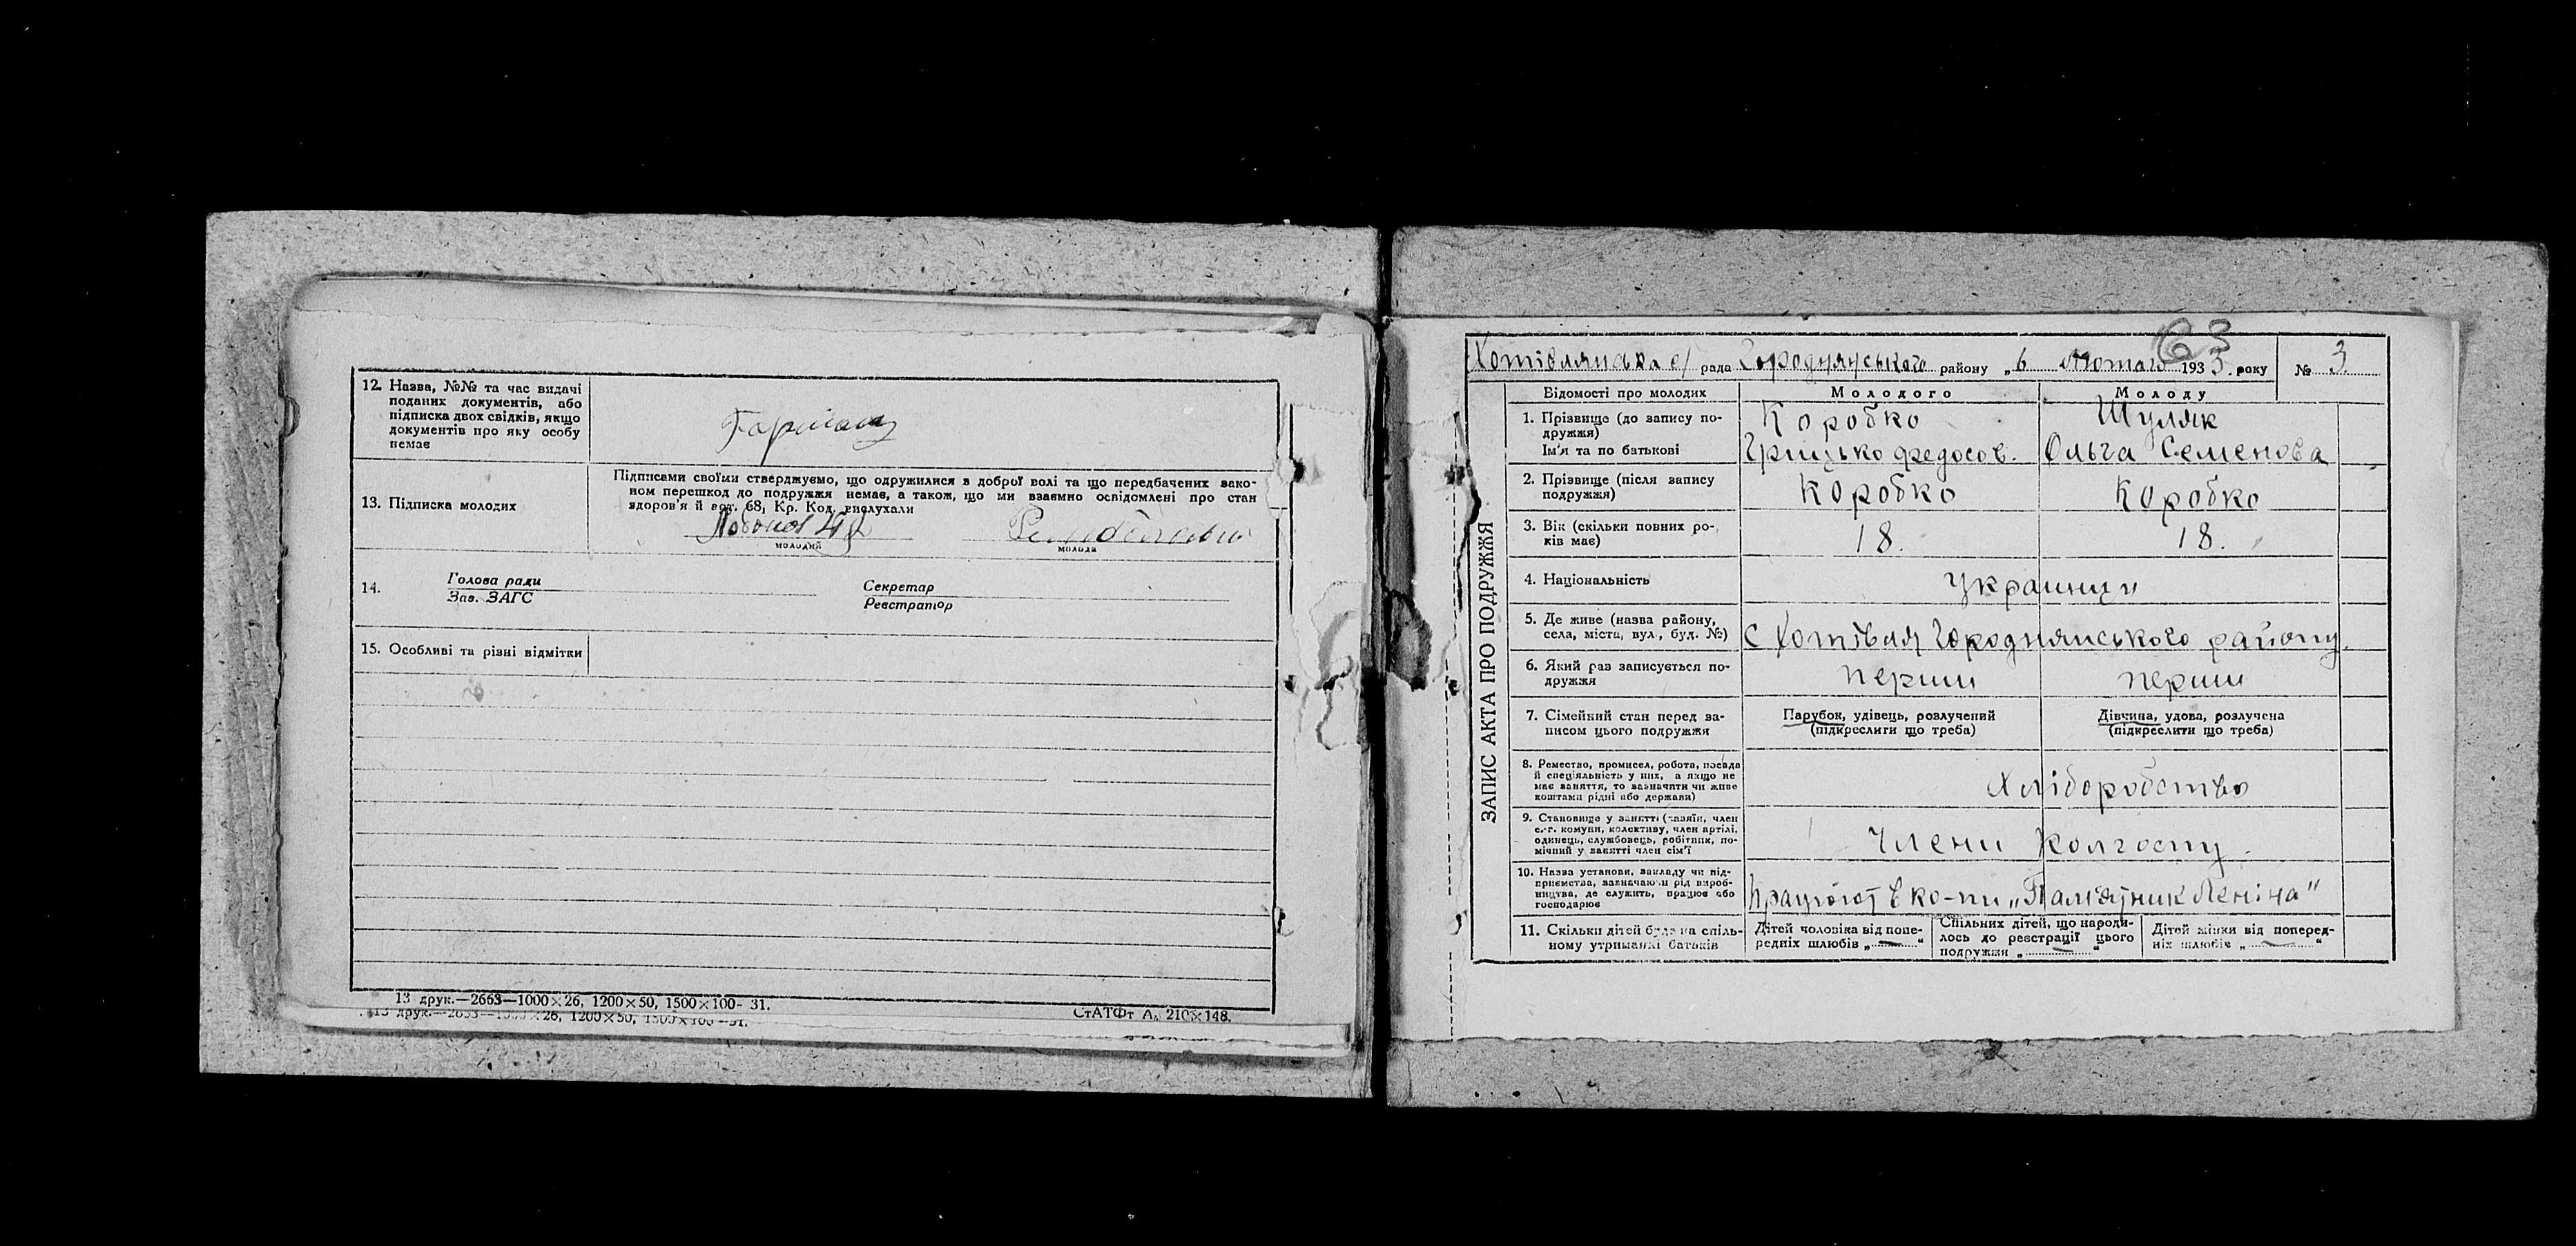 12. Назва, №№ та час видачі
поданих документів, або
підписка двох свідків, якщо
документів про яку особу
немає
13. Підписка молодих
Підписами своїми стверджуємо, що одружилися з доброї волі та що передбачених зако-
ном перешкод до подружжя немає, а також, що ми взаємно освідомлені про стан
здоров'я й арт. 68, Кр. Код. вислухали
молодий
молода
14.
Голова ради
Зав. ЗАГС
Секретар
Реєстратор
15. Особливі та різні відмітки
13 друк.—2663—1000×26, 1200×50, 1500×100- 31.
СтАТФт А₅ 210×148.
63
Хотівлянська с/ рада Городнянського району „6 Лютого 1933. року
№ 3.
ЗАПИС АКТА ПРО ПОДРУЖЖЯ
Відомості про молодих
Молодого
Молоду
1. Прізвище (до запису по-
дружжя)
Ім'я та по батькові
Коробко
Грицько федосов.
Шуляк
Ольга Семенова
2. Прізвище (після запису
подружжя)
Коробко
Коробко
3. Вік (скільки повних ро-
ків має)
18.
18.
4. Національність
Украинци
5. Де живе (назва району,
села, міста, вул., буд. №)
с Хотівля Городнянського району.
6. Який раз записується по-
дружжя
перши
перши
7. Сімейний стан перед за-
писом цього подружжя
Парубок, удівець, розлучений
(підкреслити що треба)
Дівчина, удова, розлучена
(підкреслити що треба)
8. Ремество, промисел, робота, посада
й спеціяльність у них, а якщо не
має заняття, то зазначити чи живе
коштами рідні або держави)
Хліборобство
9. Становище у занятті (хазяїн, член
с.-г. комуни, колективу, член артілі,
одинець, службовець, робітник, по-
мічний у занятті член сім'ї
Члени колгоспу.
10. Назва установи, закладу чи під-
приємства, зазначаючи рід вироб-
ництва, де служить, працює або
господарює
Працюют в ко-пи „Памятник Леніна"
11. Скільки дітей буде на спіль-
ному утриманні батьків
Дітей чоловіка від попе-
редніх шлюбів „ — "
Спільних дітей, що народи-
лось до реєстрації цього
подружжя „ — "
Дітей жінки від поперед-
ніх шлюбів „ — "